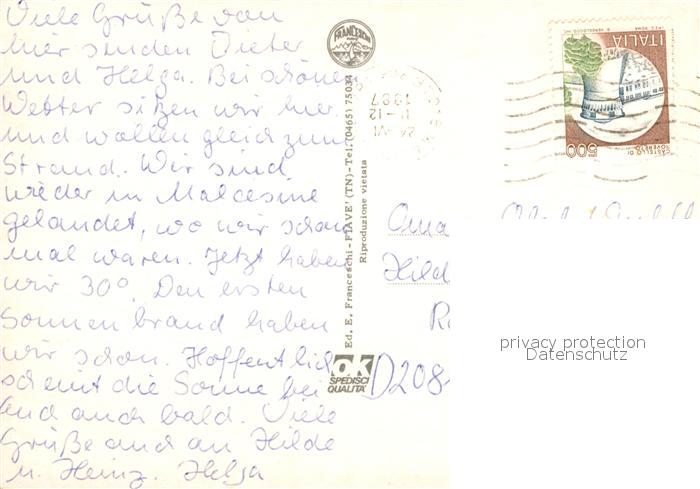 Viele Grüße von
hier senden Dieter
und Helga. Bei schönem
Wetter sitzen wir hier
und wollen gleich zum
Strand. Wir sind
wieder in Malcesine
gelandet, wo wir schon
mal waren. Jetzt haben
wir 30°. Den ersten
Sonnenbrand haben
wir schon. Hoffentlich
scheint die Sonne bei
Euch auch bald. Viele
Grüße auch an Hilde
u. Heinz. Helga
FRANCESCHI
Ed. E. Franceschi - FIAVE' (TN) - Tel. (0465) 75034
Riproduzione vietata
ok
SPEDISCI
QUALITÀ
1997
11-12
24 VI
ITALIA
500
CASTELLO DI
ROVERETO
Oma
Hild
D208
privacy protection
Datenschutz